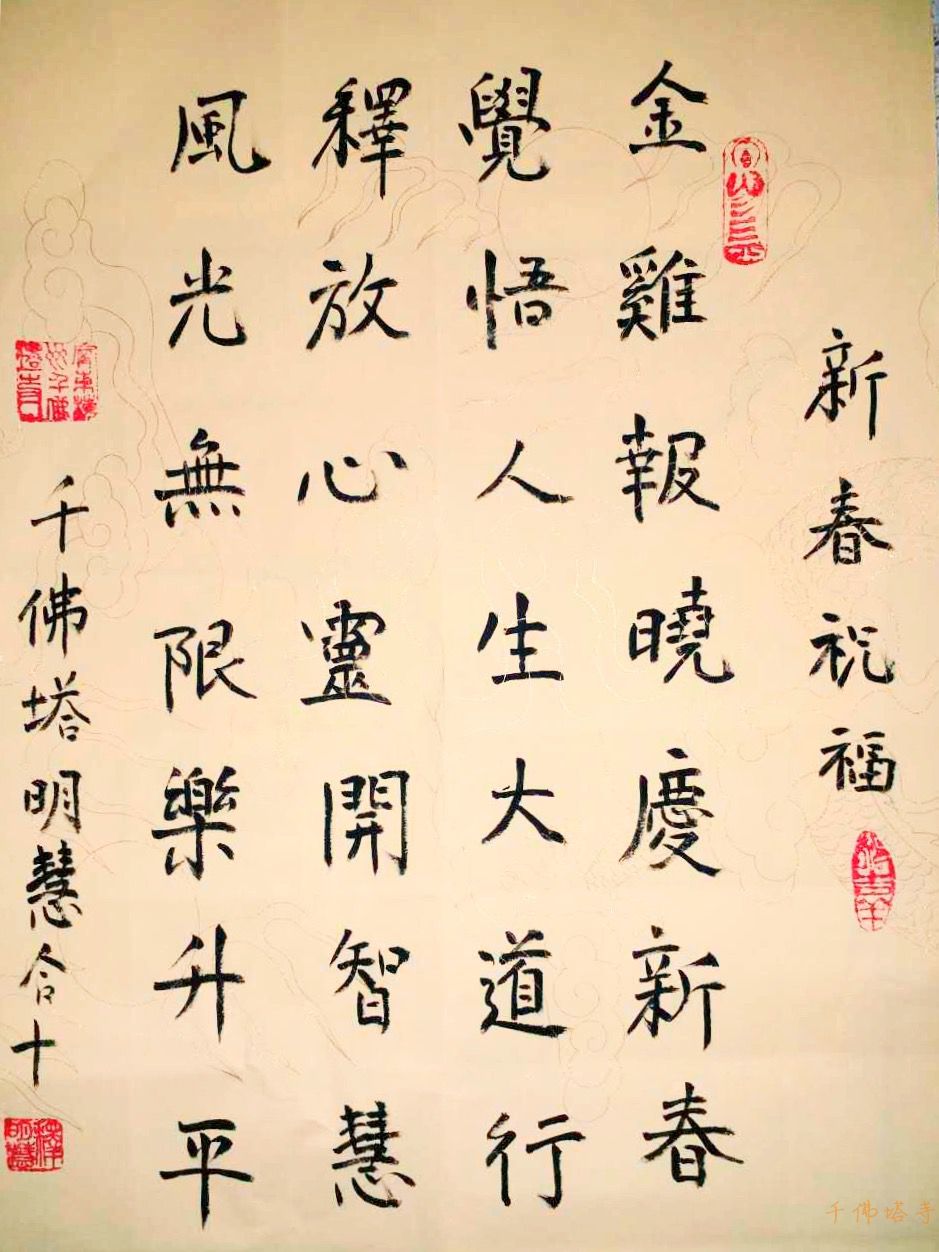 新春祝福
金雞報曉慶新春
覺悟人生大道行
釋放心靈開智慧
風光無限樂升平
千佛塔明慧合十
千佛塔寺